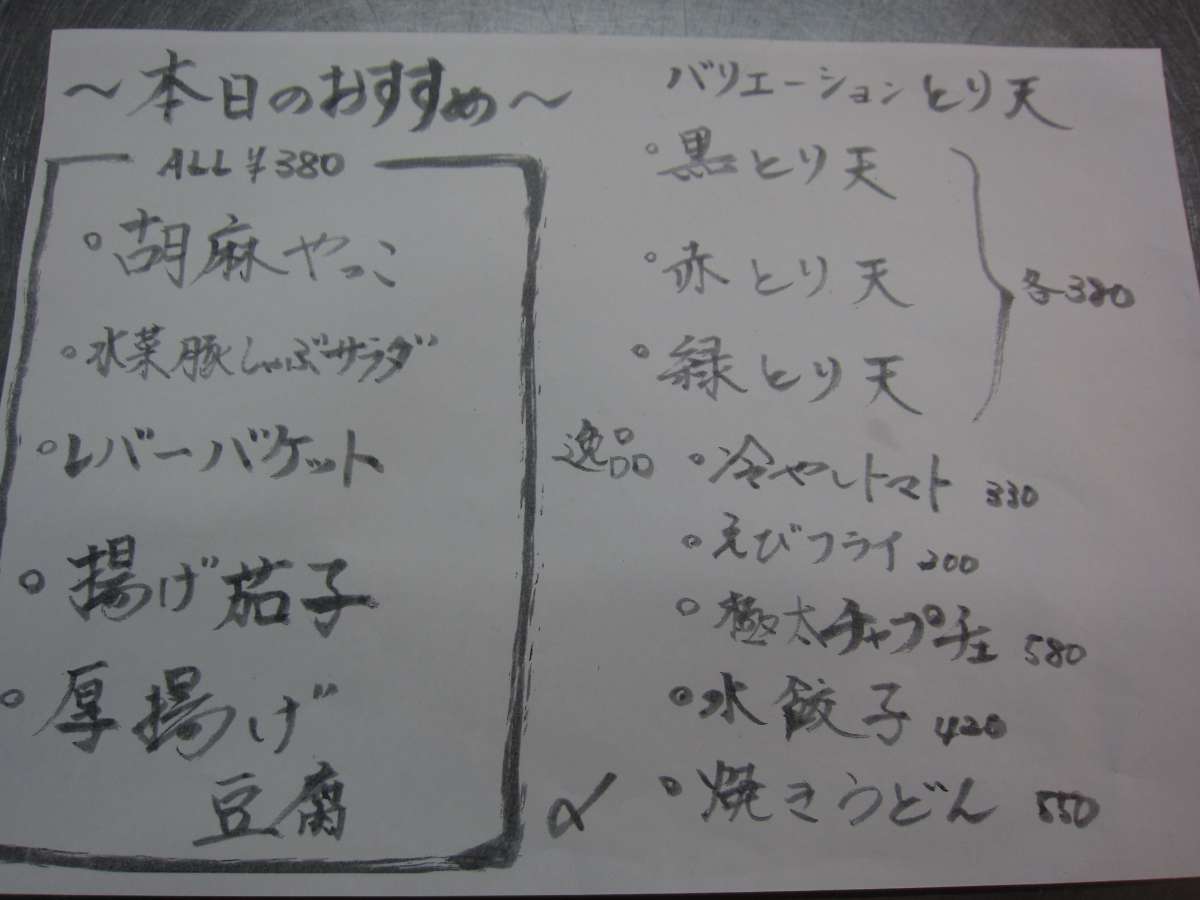 〜本日のおすすめ〜
ALL ¥380
胡麻やっこ
水菜豚しゃぶサラダ
レバーバケット
揚げ茄子
厚揚げ
豆腐
バリエーションとり天
黒とり天
赤とり天
緑とり天
各380
逸品 冷やしトマト 330
えびフライ 200
極太チャプチェ 580
水餃子 420
〆 焼きうどん 550